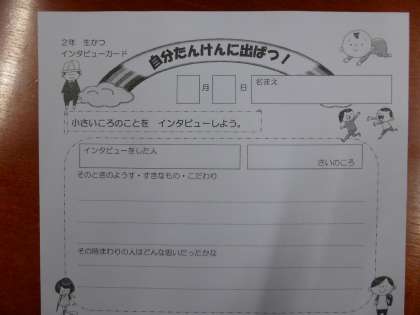 2年 生かつ
インタビューカード
自分たんけんに出ぱつ！
月 日 名まえ
小さいころのことを インタビューしよう。
インタビューをした人
さいのころ
そのときのようす・すきなもの・こだわり
その時まわりの人はどんな思いだったかな